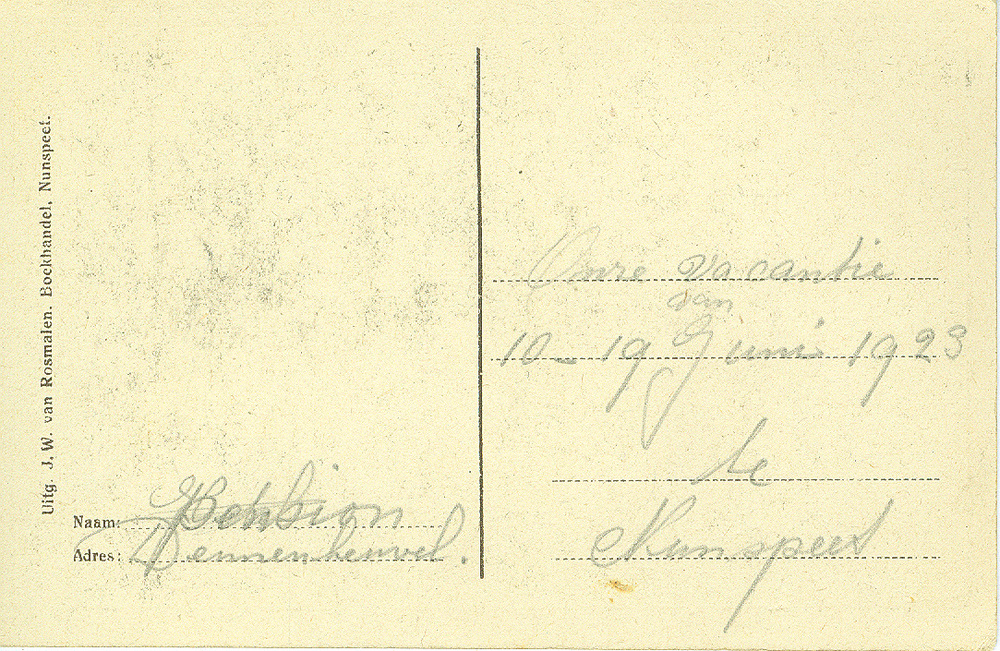 Uitg. J. W. van Rosmalen. Boekhandel, Nunspeet.
Naam: Pension
Adres: Dennenheuvel.
Onze vacantie
van
10 - 19 Juni 1923
te
Nunspeet